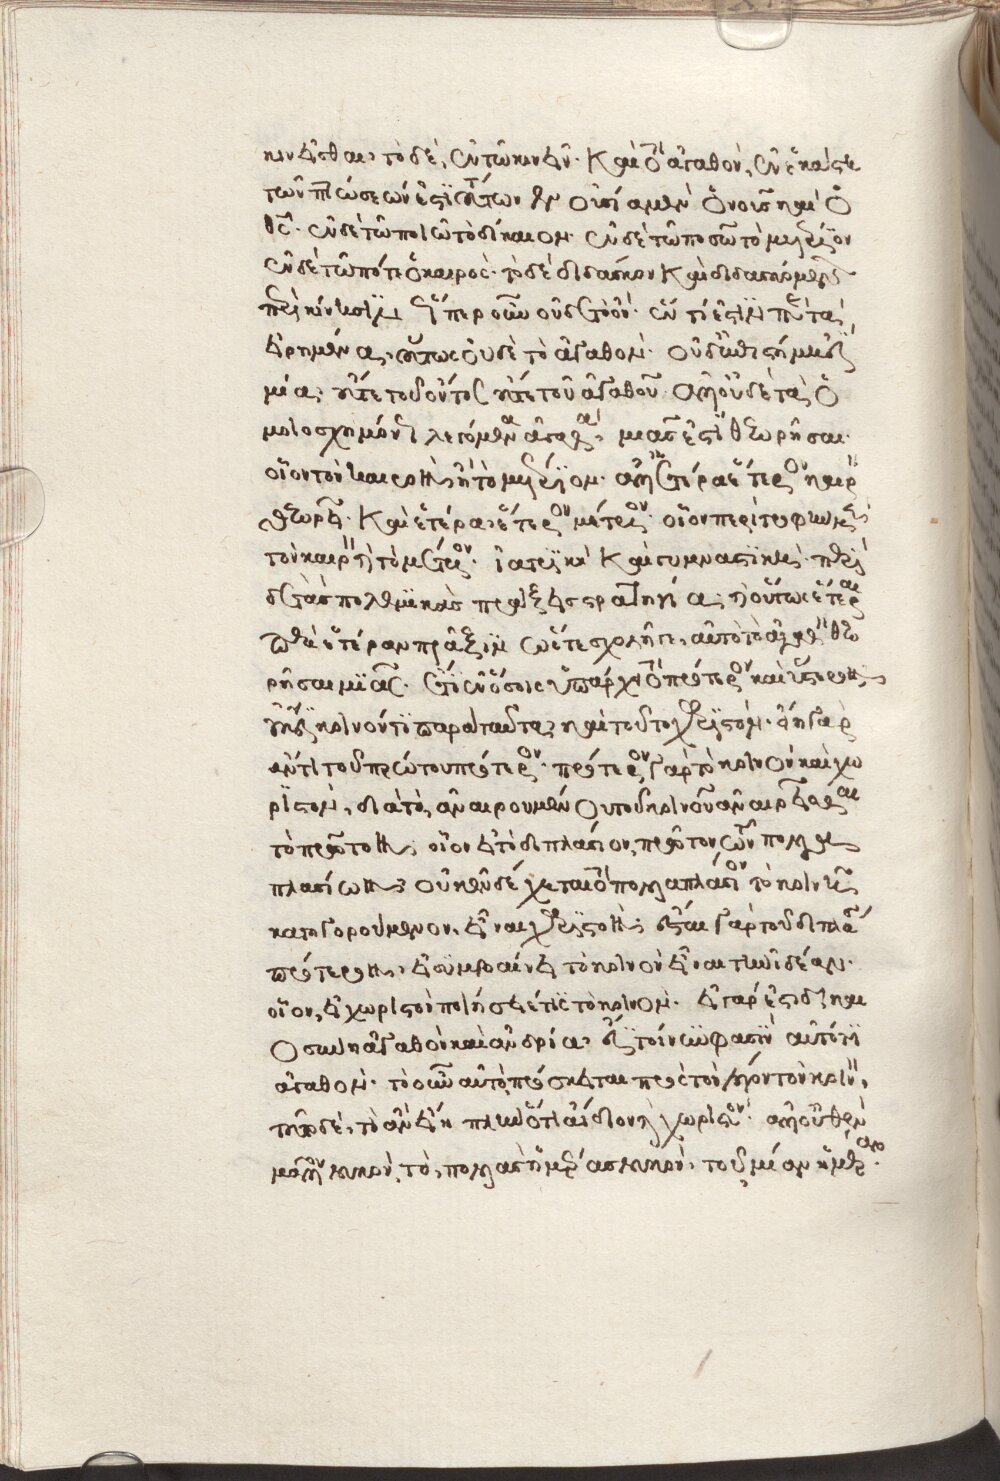 κινεῖσθαι· τὸ δὲ, ἐν τῶ κινεῖν· καὶ τὸ ἀγαθὸν, ἐν ἑκάστη
τῶν πτώσεών ἐστι τούτων ἐν οὐσία μὲν ὁ νοῦς καὶ ὁ
θεός· ἐν δὲ τῶ ποιῶ τὸ δίκαιον· ἐν δὲ τῶ ποσῶ τὸ μέτριον
ἐν δὲ τῶ πότε ὁ καιρός· τὸ δὲ διδάσκον καὶ διδασκόμενον
περὶ κίνησιν ὥσπερ οὖν οὐδὲ τὸ ὄν· ἕν τί ἐστιν παρὰ τὰ
εἰρημένα, οὕτως οὐδὲ τὸ ἀγαθόν· οὐδὲ ἐπιστήμη ἐστὶ
μία· οὔτε τοῦ ὄντος οὔτε τοῦ ἀγαθοῦ· ἀλλ' οὐδὲ τὰ ὁ
μοιοσχημόνως λεγόμενα ἀγαθὰ, μιᾶς ἐστὶ θεωρῆσαι·
οἷον τὸν καιρὸν, ἢ τὸ μέτριον· ἀλλ' ἑτέρα ἕτερον καιρὸν
θεωρεῖ· καὶ ἑτέρα, ἕτερον μέτριον· οἷον περὶ τροφὴν μὲν,
τὸν καιρὸν καὶ τὸ μέτριον· ἰατρικὴ καὶ γυμναστική· περὶ
δὲ τὰς πολεμικὰς πράξεις στρατηγία, καὶ οὕτως ἑτέρα
περὶ ἑτέραν πρᾶξιν ὥστε σχολῆ γε, αὐτὸ τὸ ἀγαθὸν θεω
ρῆσαι μιᾶς. ἔτι ἐν ὅσοις ὑπάρχει τὸ πρότερον καὶ ὕστερον,
οὐκ ἔστι κοινόν τι παρὰ ταῦτα, καὶ τοῦτο χωριστόν· εἴη γὰρ
ἄν τι τοῦ πρώτου πρότερον· πρότερον γὰρ τὸ κοινὸν καὶ χω
ριστόν, διὰ τὸ, ἀναιρουμένου τοῦ κοινοῦ ἀναιρεῖσθαι
τὸ πρῶτον, οἷον εἰ τὸ διπλάσιον, πρῶτον τῶν πολλα
πλασίων, οὐκ ἐνδέχεται τὸ πολλαπλάσιον τὸ κοινῆ
κατηγορούμενον, εἶναι χωριστόν, ἔσται γὰρ τοῦ διπλασίου
πρότερον, εἰ συμβαίνει τὸ κοινὸν εἶναι τὴν ἰδέαν·
οἷον, εἰ χωριστὸν ποιήσειέ τις τὸ κοινόν· εἰ γάρ ἐστι δικαι
οσύνη ἀγαθὸν καὶ ἀνδρία, ἔστι τοίνυν φασὶν αὐτό τι
ἀγαθόν· τὸ οὖν αὐτὸ, πρόσκειται πρὸς τὸν λόγον τὸν κοινόν,
τοῦτο δὲ, τὸ ἂν εἴη πλὴν ὅτι ἀΐδιον καὶ χωριστόν· ἀλλ' οὐθὲν
μᾶλλον λευκὸν, τὸ, πολλὰς ἡμέρας λευκὸν, τοῦ μίαν ἡμέραν·